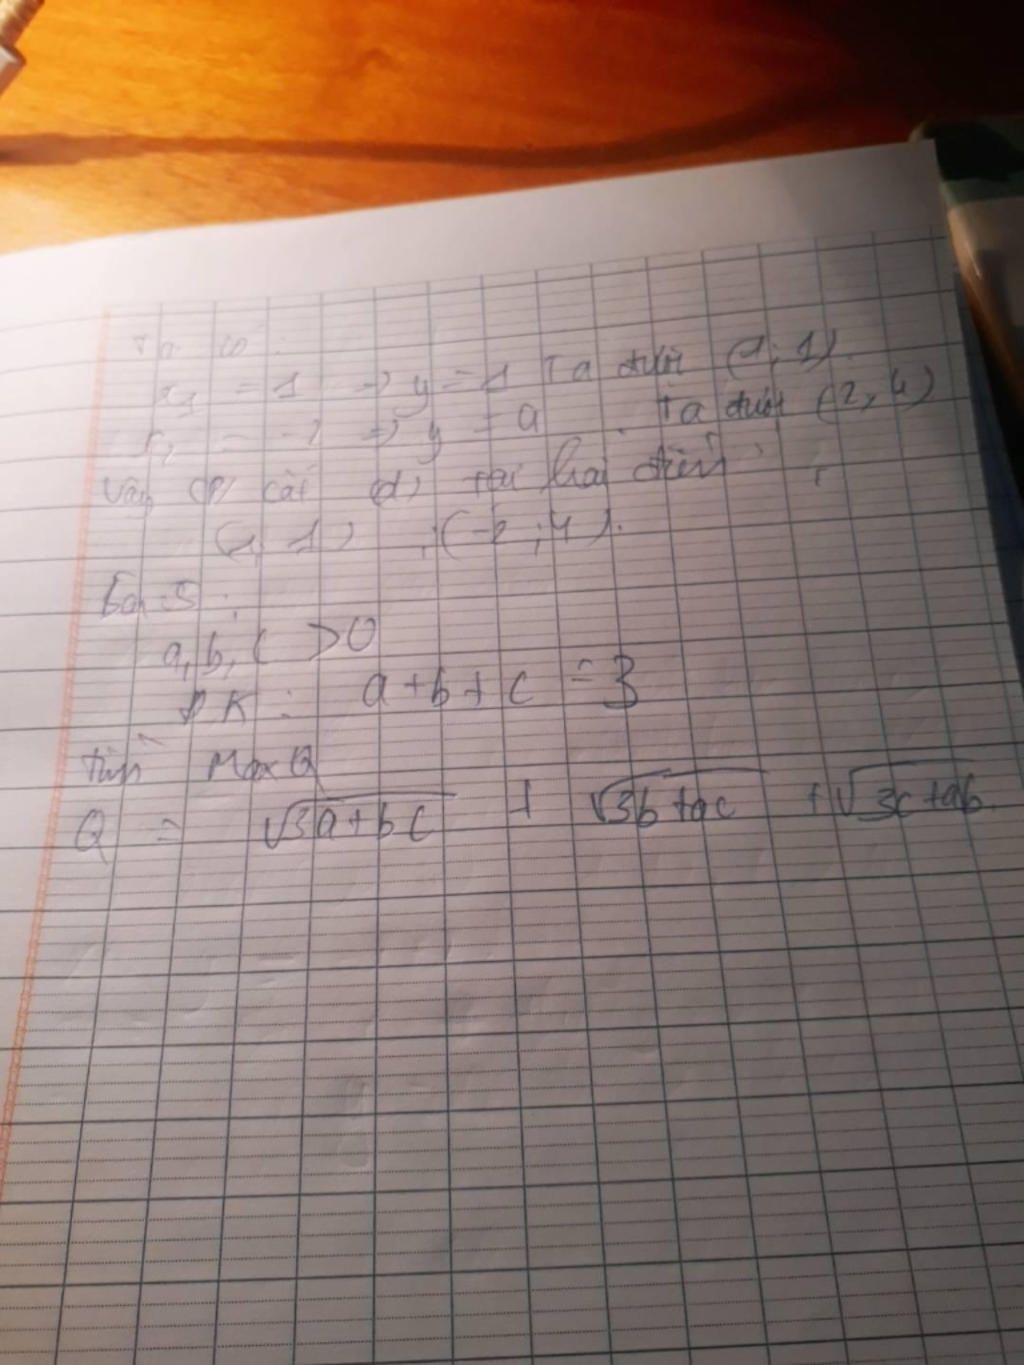 Ta có:
x₁ = 1 => y = 1 Ta được (1; 1).
x₂ = -2 => y = 4 Ta được (2, 4)
Vậy (P) cắt (d) tại hai điểm
(1, 1) , (-2; 4).
Bài 5:
a, b, c > 0
ĐK: a + b + c = 3
tìm Max Q
Q = √(3a + bc) + √(3b + ac) + √(3c + ab).